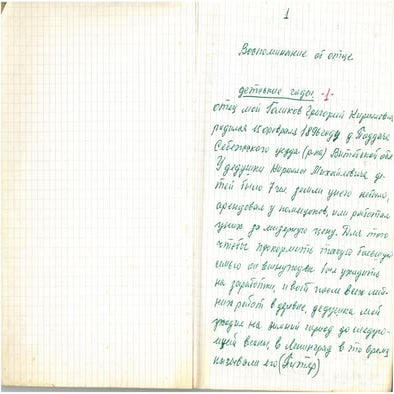 1
Воспоминание об отце
детские годы. -1-
отец мой Голиков Григорий Кириллович
родился 15 февраля 1896 году д.
Себежского уезда (р-на) Витебской обл
У дедушки Кириллы Михайловича де-
тей было 7 чел. земли у него небыло,
арендовал у помещиков, или работал
у них за мизерную цену. Для того
чтобы прокормить такую большую
семью он вынужден был уходить
на заработки, и вот после всех
них работ в дервне, дедушка мой
уходил на зимний период до следую-
щей весны, в Ленинград в то время
называли его (Питер)